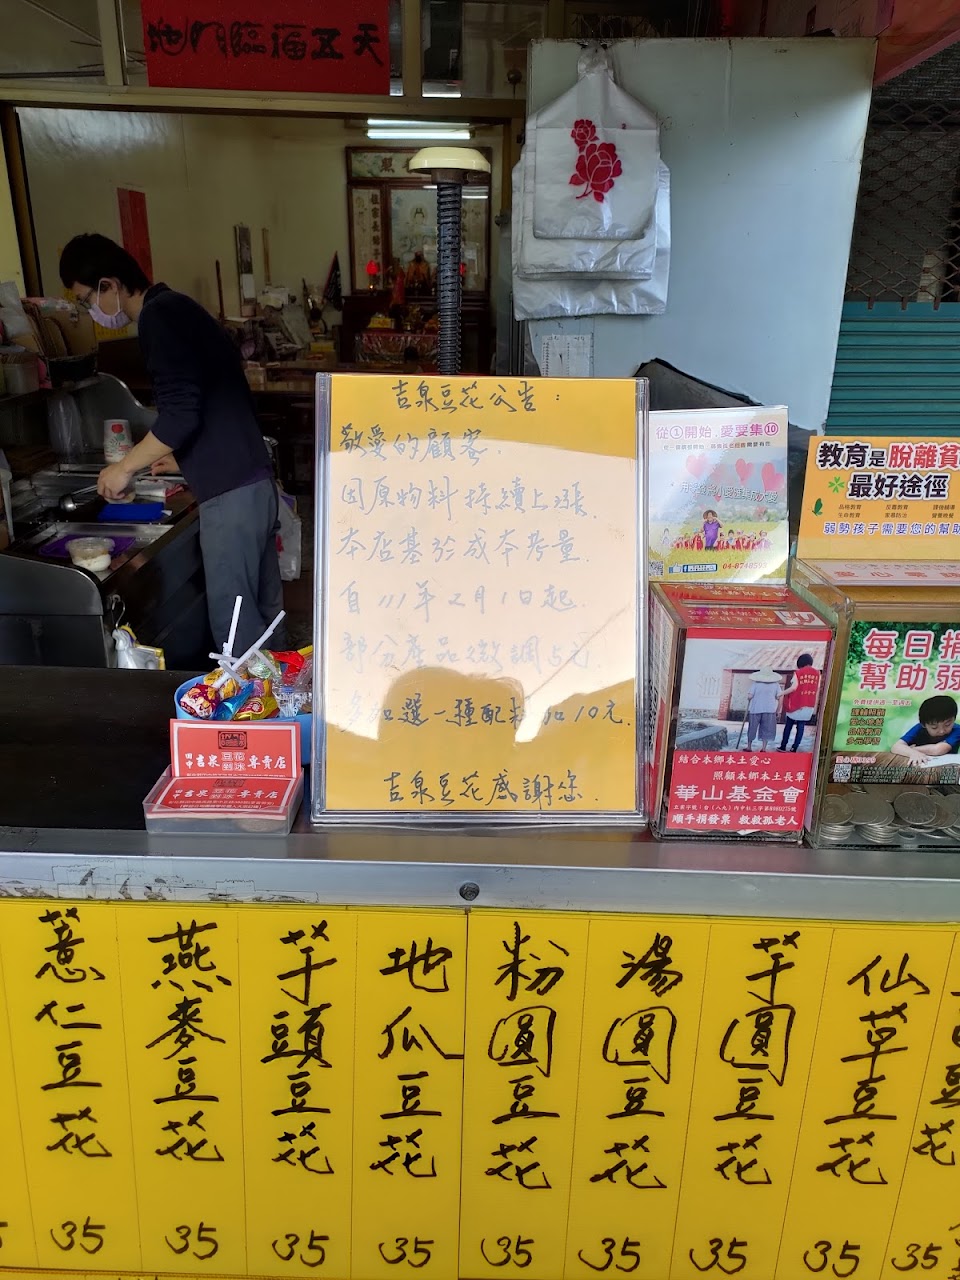 天五福臨門地
吉泉豆花公告：
敬愛的顧客.
因原物料持續上漲.
本店基於成本考量.
自111年2月1日起.
部分產品微調5元.
多加選一種配料加10元.
吉泉豆花感謝您.
從①開始.愛要集⑩
04-8740593
教育是脫離貧
最好途徑
弱勢孩子需要您的幫助
每日捐
幫助弱
結合本鄉本土愛心
照顧本鄉本土長輩
華山基金會
順手捐發票 救救孤老人
田中 吉泉 豆花 專賣店
田中 吉泉 專賣店
薏仁豆花 35
燕麥豆花 35
芋頭豆花 35
地瓜豆花 35
粉圓豆花 35
湯圓豆花 35
芋圓豆花 35
仙草豆花 35
豆花 35